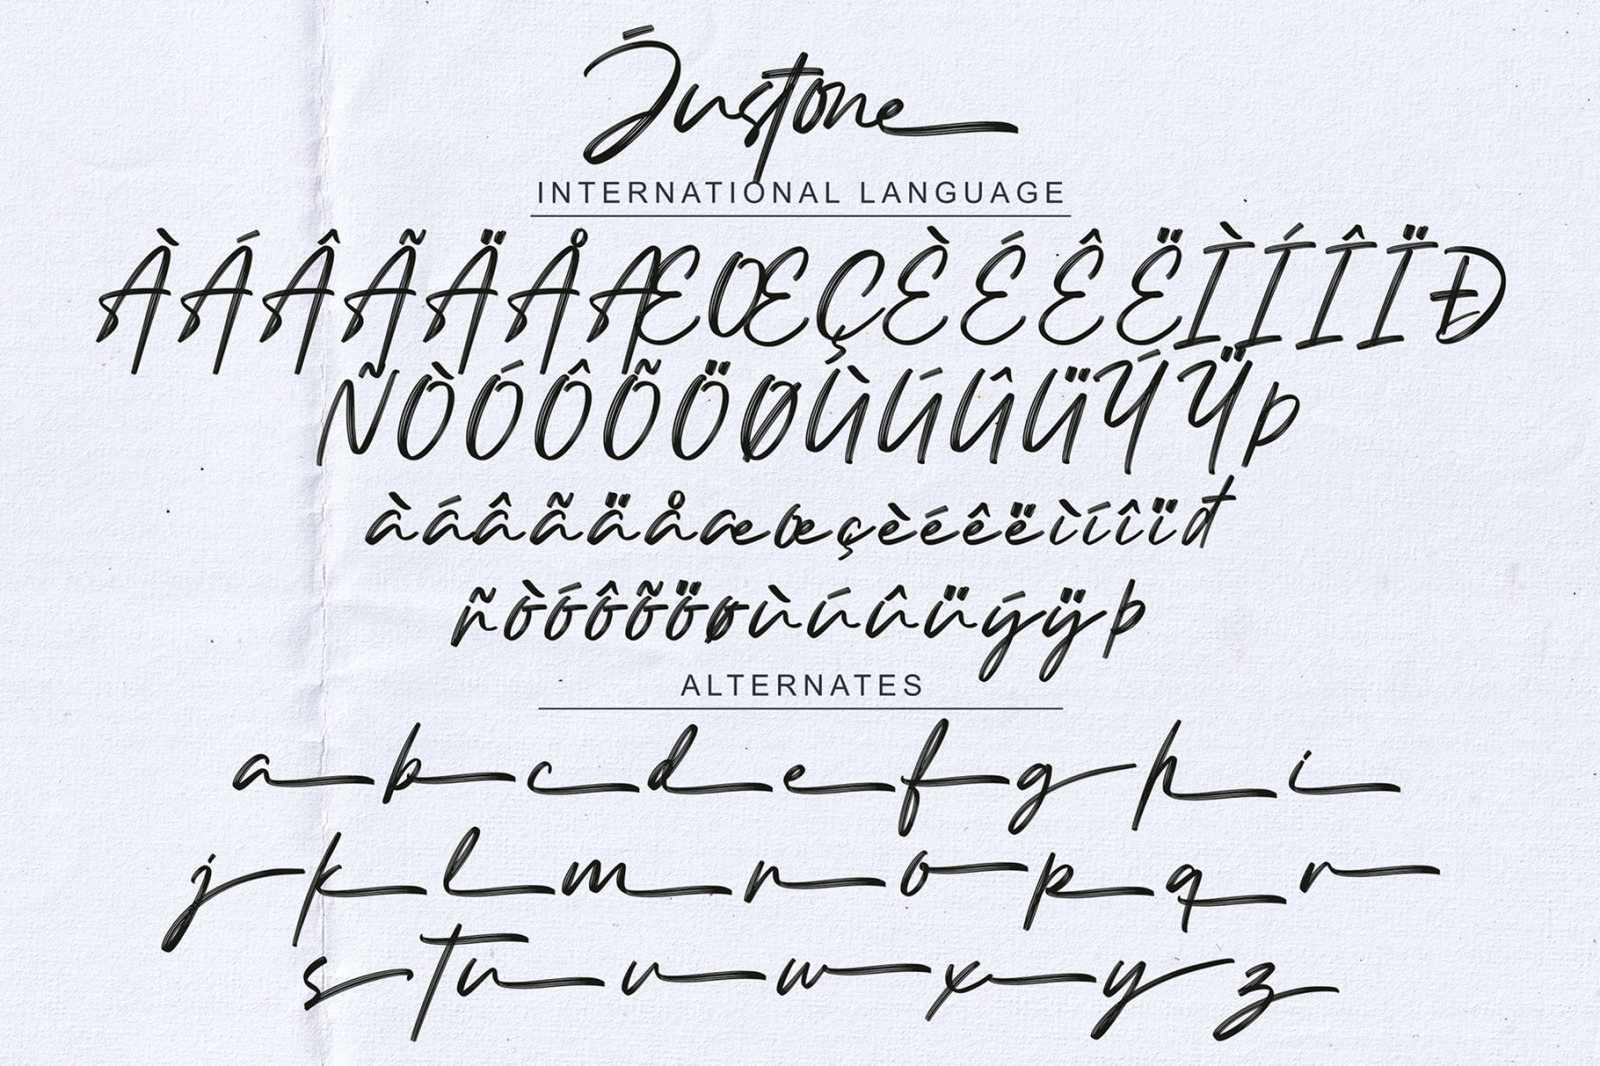 Justone
INTERNATIONAL LANGUAGE
ÀÁÂÃÄÅÆŒÇÈÉÊËÌÍÎÏÐ
ÑÒÓÔÕÖØÙÚÛÜÝŸÞ
àáâãäåæœçèéêëìíîïđ
ñòóôõöøùúûüýÿþ
ALTERNATES
a b c d e f g h i
j k l m n o p q r
s t u v w x y z